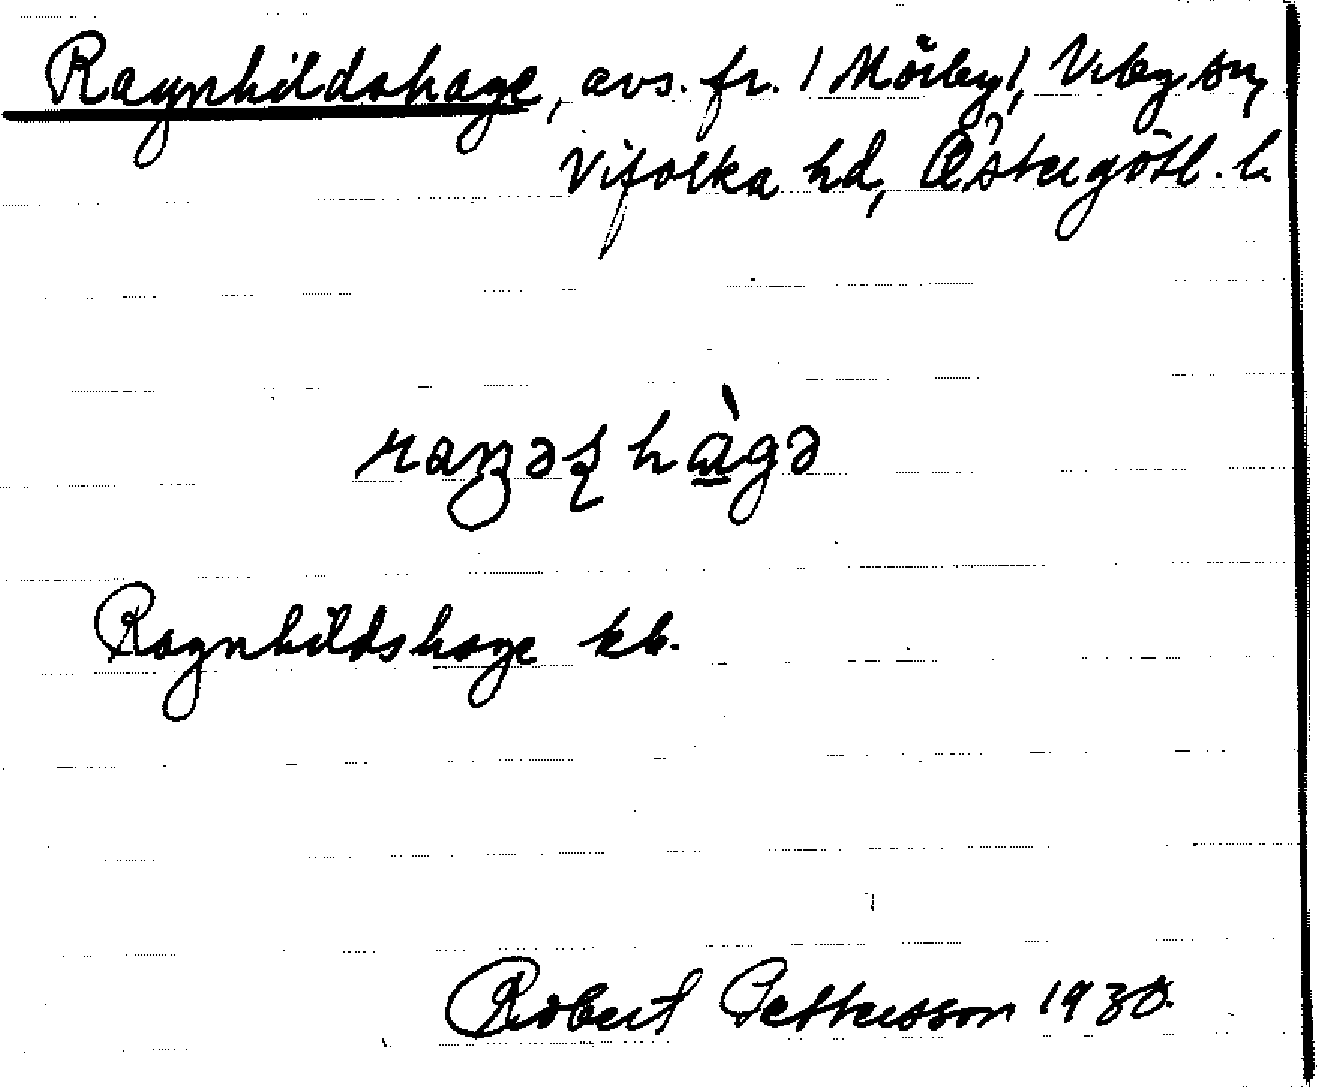 Ragnhildshage, avs. fr. / Mörby /, Viby sn,
Vifolka hd, Östergötl. l.
raŋəʂhàgə
Ragnhildshage kb.
Robert Pettersson 1930.